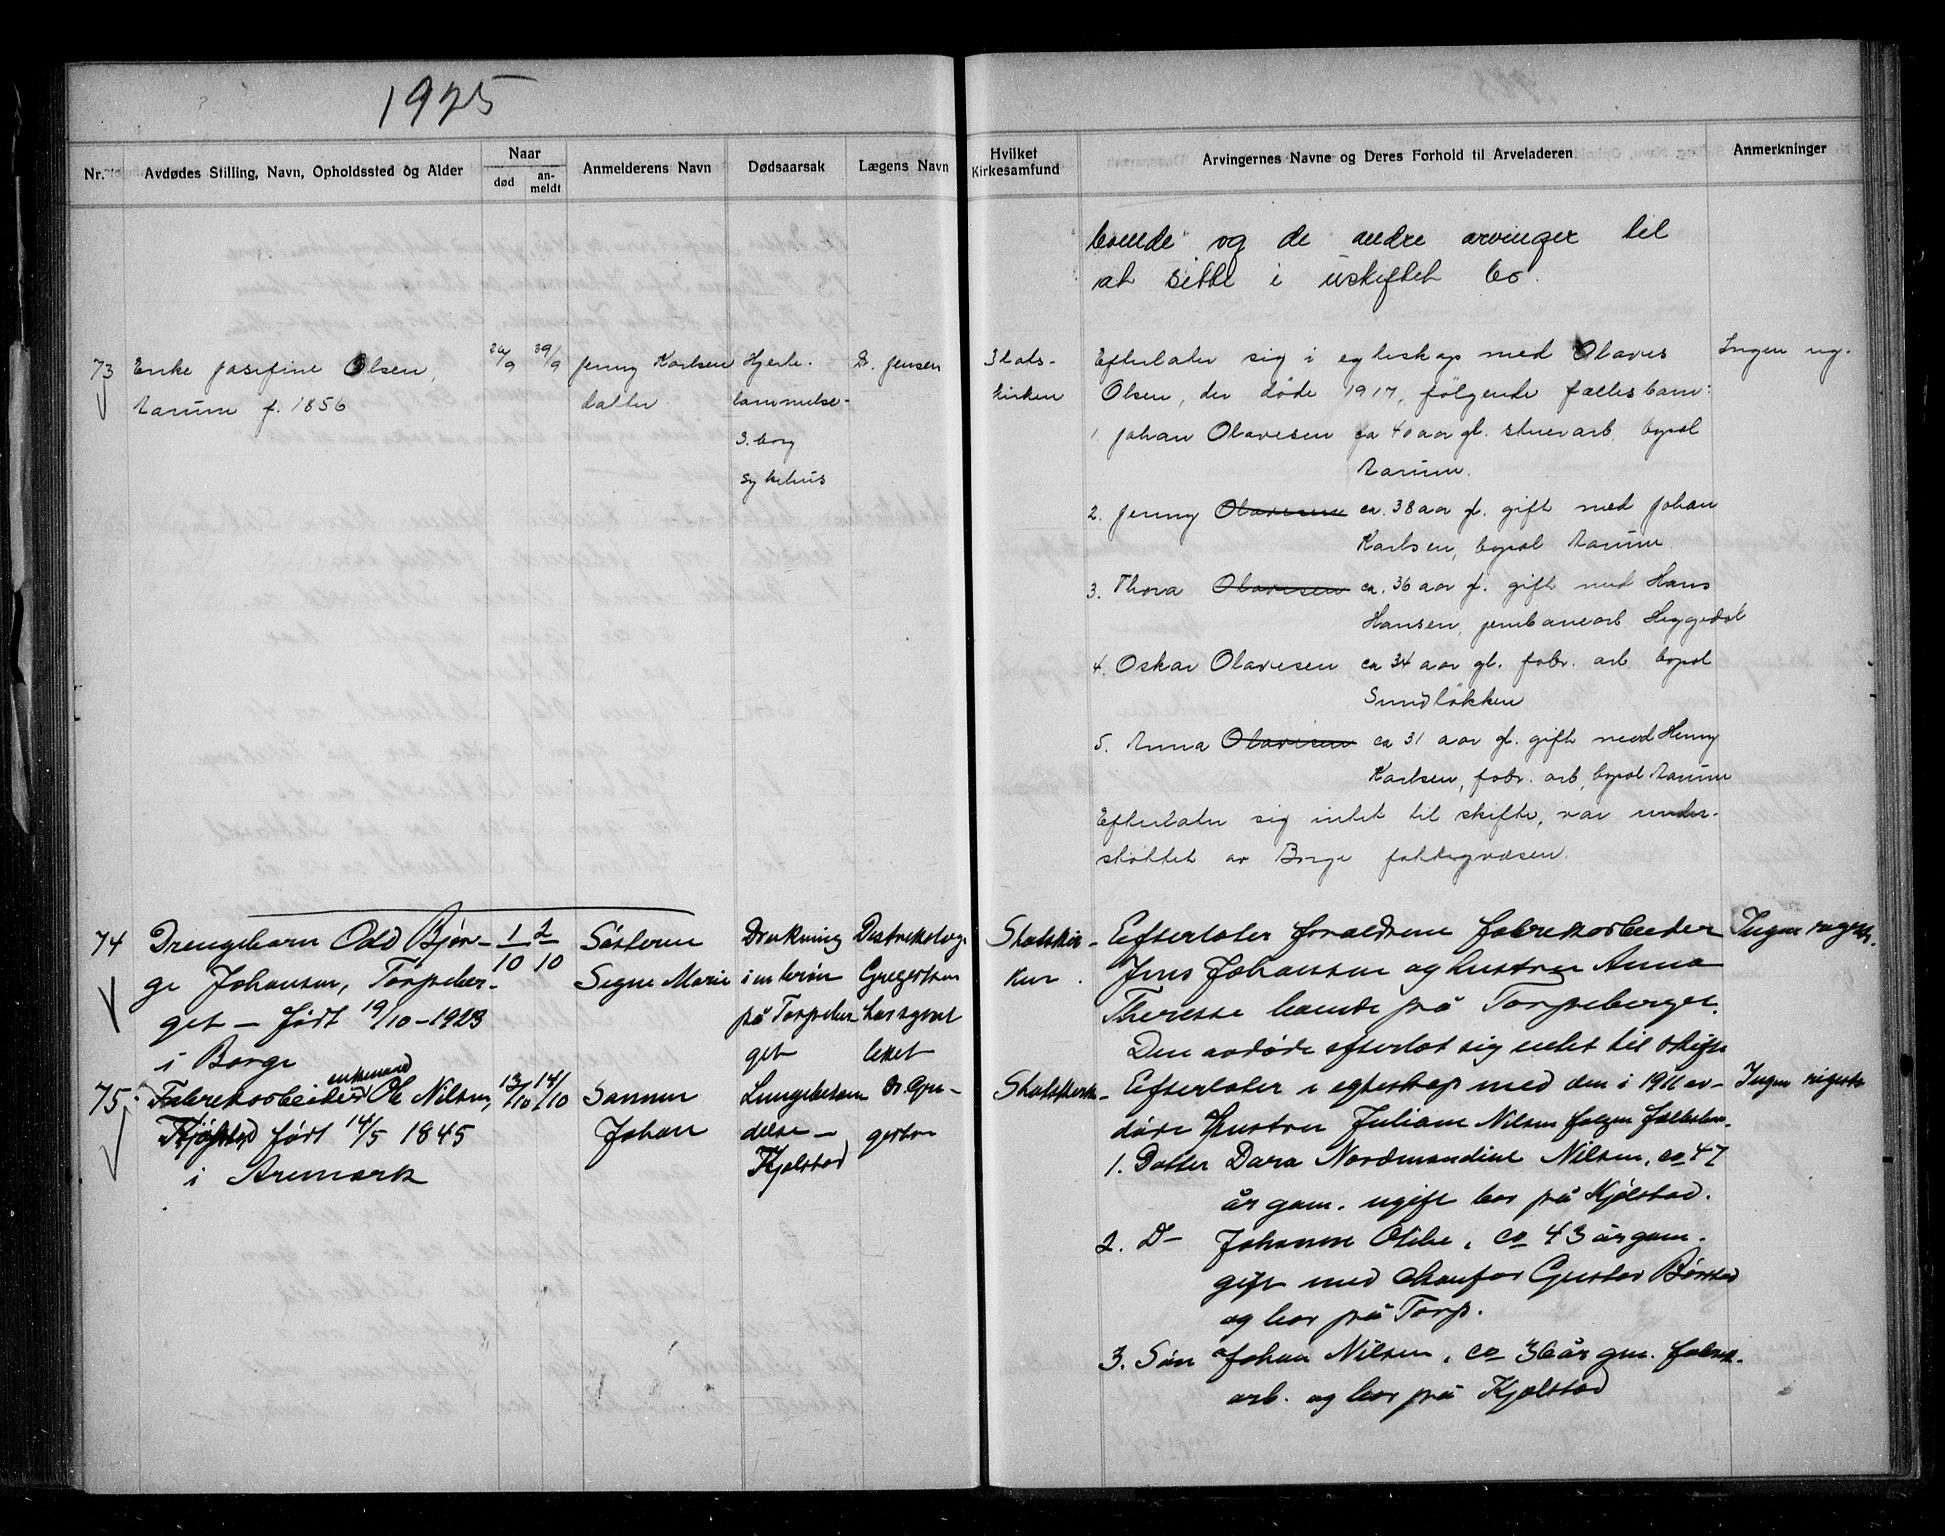 1925
Nr.
Avdødes Stilling, Navn, Opholdssted og Alder
Naar
død
an-
meldt
Anmelderens Navn
Dødsaarsak
Lægens Navn
Hvilket
Kirkesamfund
Arvingernes Navne og Deres Forhold til Arveladeren
Anmerkninger
boende og de andre arvinger til
at sitte i uskiftet bo.
73
Enke Josefine Olsen,
Aarum f. 1856
26/9
29/9
Jenny Karlsen
datter
Hjerte-
lammelse-
S.borg
sykehus
Dr. Jensen
Stats-
kirken
Efterlater sig i egteskap med Olaves
Olsen, der døde 1917, følgende fællesbarn:
1. Johan Olavesen ca 40 aar gl. stuerarb. bopæl
Aarum.
2. Jenny Olavesen ca. 38 aar gl. gift med Johan
Karlsen, bopæl Aarum
3. Thora Olavesen ca. 36 aar gl. gift med Hans
Hansen, jernbanearb. Heggedal
4. Oskar Olavesen ca 34 aar gl. fabr. arb. bopæl
Sundløkken
5. Anna Olavesen ca 31 aar gl. gift med Henry
Karlsen, fabr. arb, bopæl Aarum
Efterlater sig intet til skifte, var under-
støttet av Borge fattigvæsen.
Ingen reg.
74
Drengebarn Odd Bjør-
ge Johansen, Torpeber-
get - født 19/10 - 1923
i Borge
1/10
2/10
Søsteren
Signe Marie
Drukning
i en brøn
på Torpeber
get
Distriktslæge
Gregersen
Lensgrev
leket
Statskir-
ken.
Efterlater forældrene fabrikarbeider
Jens Johansen og hustru Anna
Therese boende på Torpeberget.
Den avdøde efterlot sig intet til skifte
Ingen registr.
75.
enkemand
Fabrikarbeider Ole Nilsen,
Kjølstad født 14/5 1845
i Aremark
13/10
14/10
Sønnen
Johan
Lungebetæn
delse -
Kjølstad
Dr. Gre-
gersen
Statskirk.
Efterlater i egteskap med den i 1911 av-
døde Hustru Juliane Nilsen følgen fællesbar.
1. Datter Dara Nordmandine Nilsen, ca 47
år gam. ugift bor på Kjølstad.
2. D- Johanne Otilie, ca 43 år gam.
gift med chaufør Gustav Børstad
og bor på Torp.
3. Søn Johan Nilsen, ca 36 år gm. fabrik.
arb. og bor på Kjølstad
Ingen registr